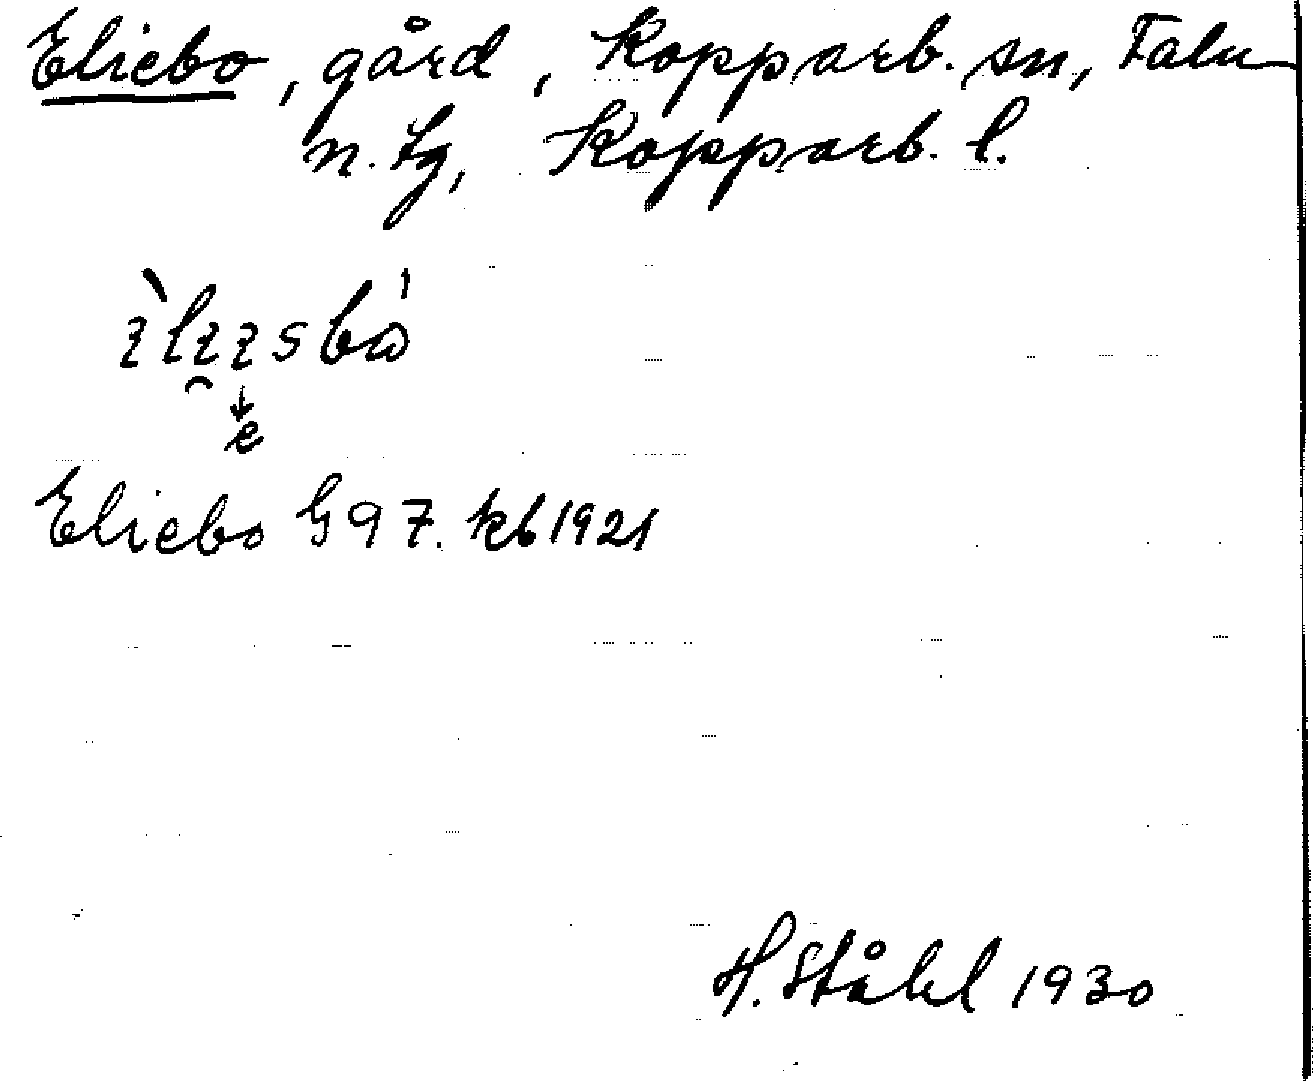 Eliebo, gård, Kopparb. sn, Falu
n. tg, Kopparb. l.
e
Eliebo G97. kb 1921
H. Ståhl 1930